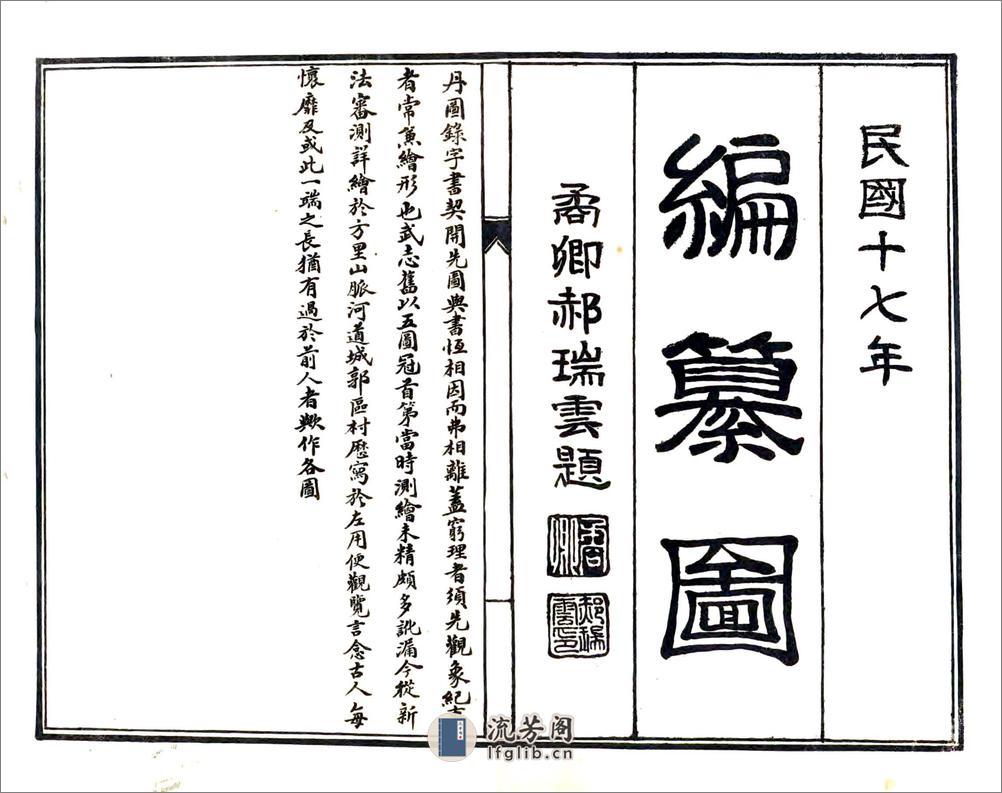 民國十七年
編纂圖
矞卿郝瑞雲題
郝瑞雲印
丹圖錄字書契開先圖與書恆相因而弗相離蓋窮理者須先觀象紀
者常兼繪形也武志舊以五圖冠首第當時測繪未精頗多訛漏今從新
法審測詳繪於方里山脈河道城郭區村歷寫於左用便觀覽言念古人每
懷靡及或此一端之長猶有過於前人者歟作各圖
流芳阁
lfglib.cn